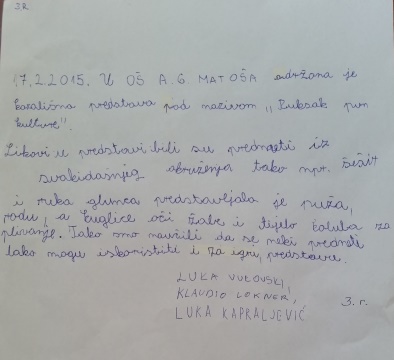 3.R
17.2.2015. U OŠ A.G MATOŠA održana je
kazališna predstava pod nazivom ,,Ruksak pun
kulture".
Likovi u predstavi bili su predmeti iz
svakidašnjeg okruženja tako npr. šešir
i ruka glumca predstavljala je puža,
rodu, a kuglice oči žabe i tijelo
plivanje. Tako smo naučili da se neki predmeti
lako mogu iskoristiti i za igru, predstavu.
LUKA VUKOVSKI,
KLAUDIO LOKNER,
LUKA KAPRALJEVIĆ 3.r.